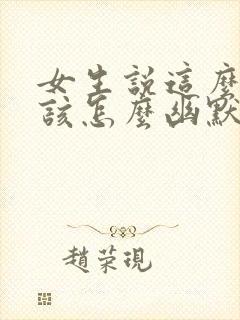 女生說這麼
該怎麼幽默
趙荣現